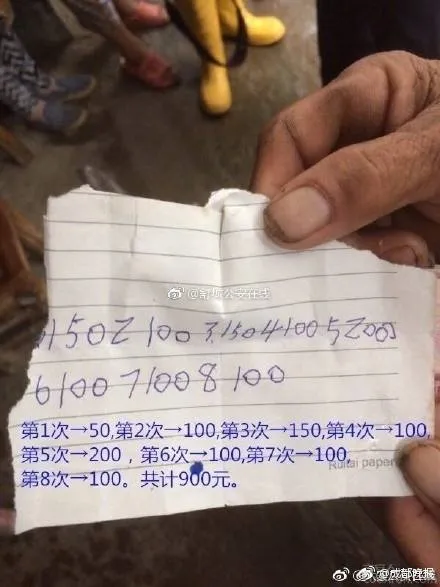 @舒城公安在线
1 50 2 100 3.150 4 100 5 200
6 100 7 100 8 100
第1次→50,第2次→100,第3次→150,第4次→100,
第5次→200，第6次→100,第7次→100,
第8次→100。共计900元。
Ruitai paper
@成都晚报